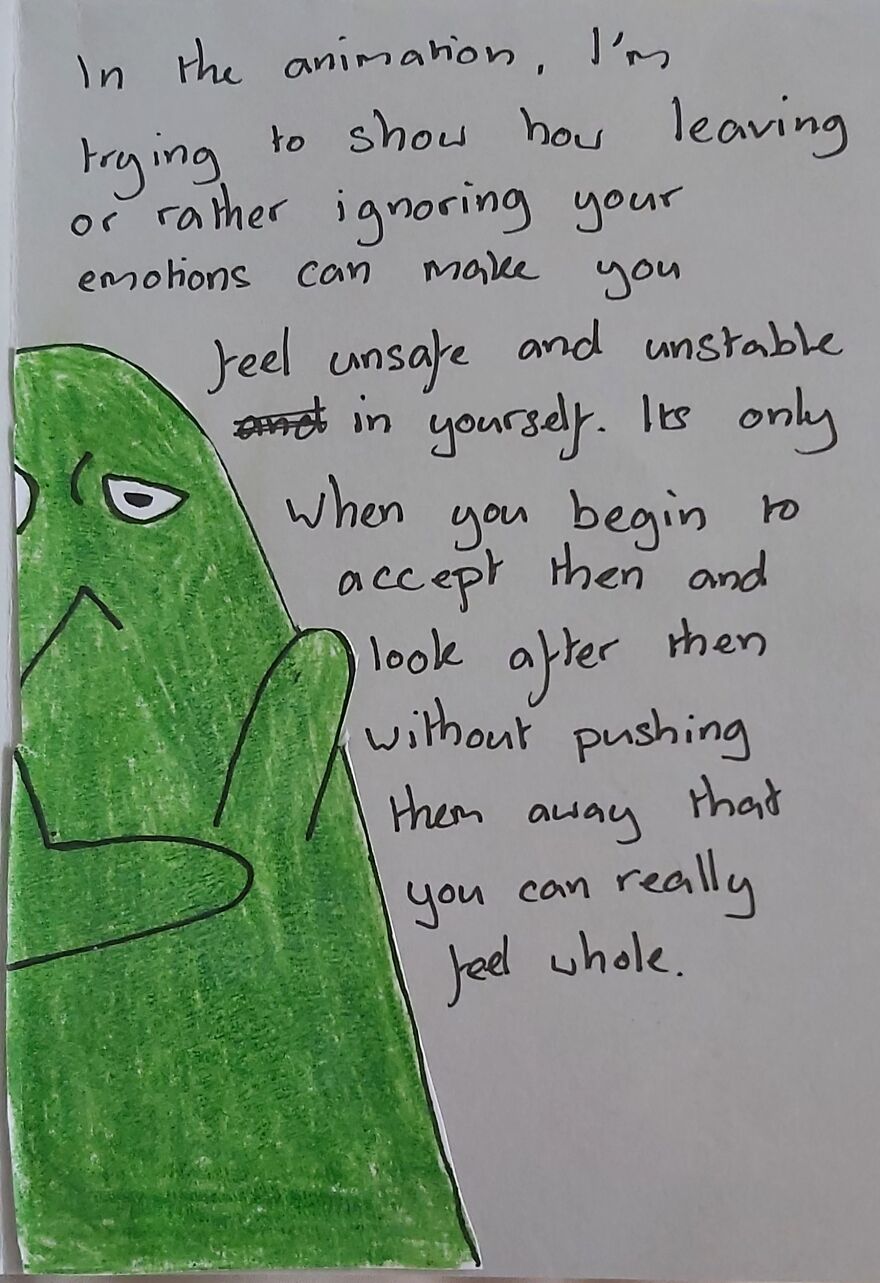 In the animation, I'm
trying to show how leaving
or rather ignoring your
emotions can make you
feel unsafe and unstable
and in yourself. Its only
when you begin to
accept then and
look after then
without pushing
them away that
you can really
feel whole.